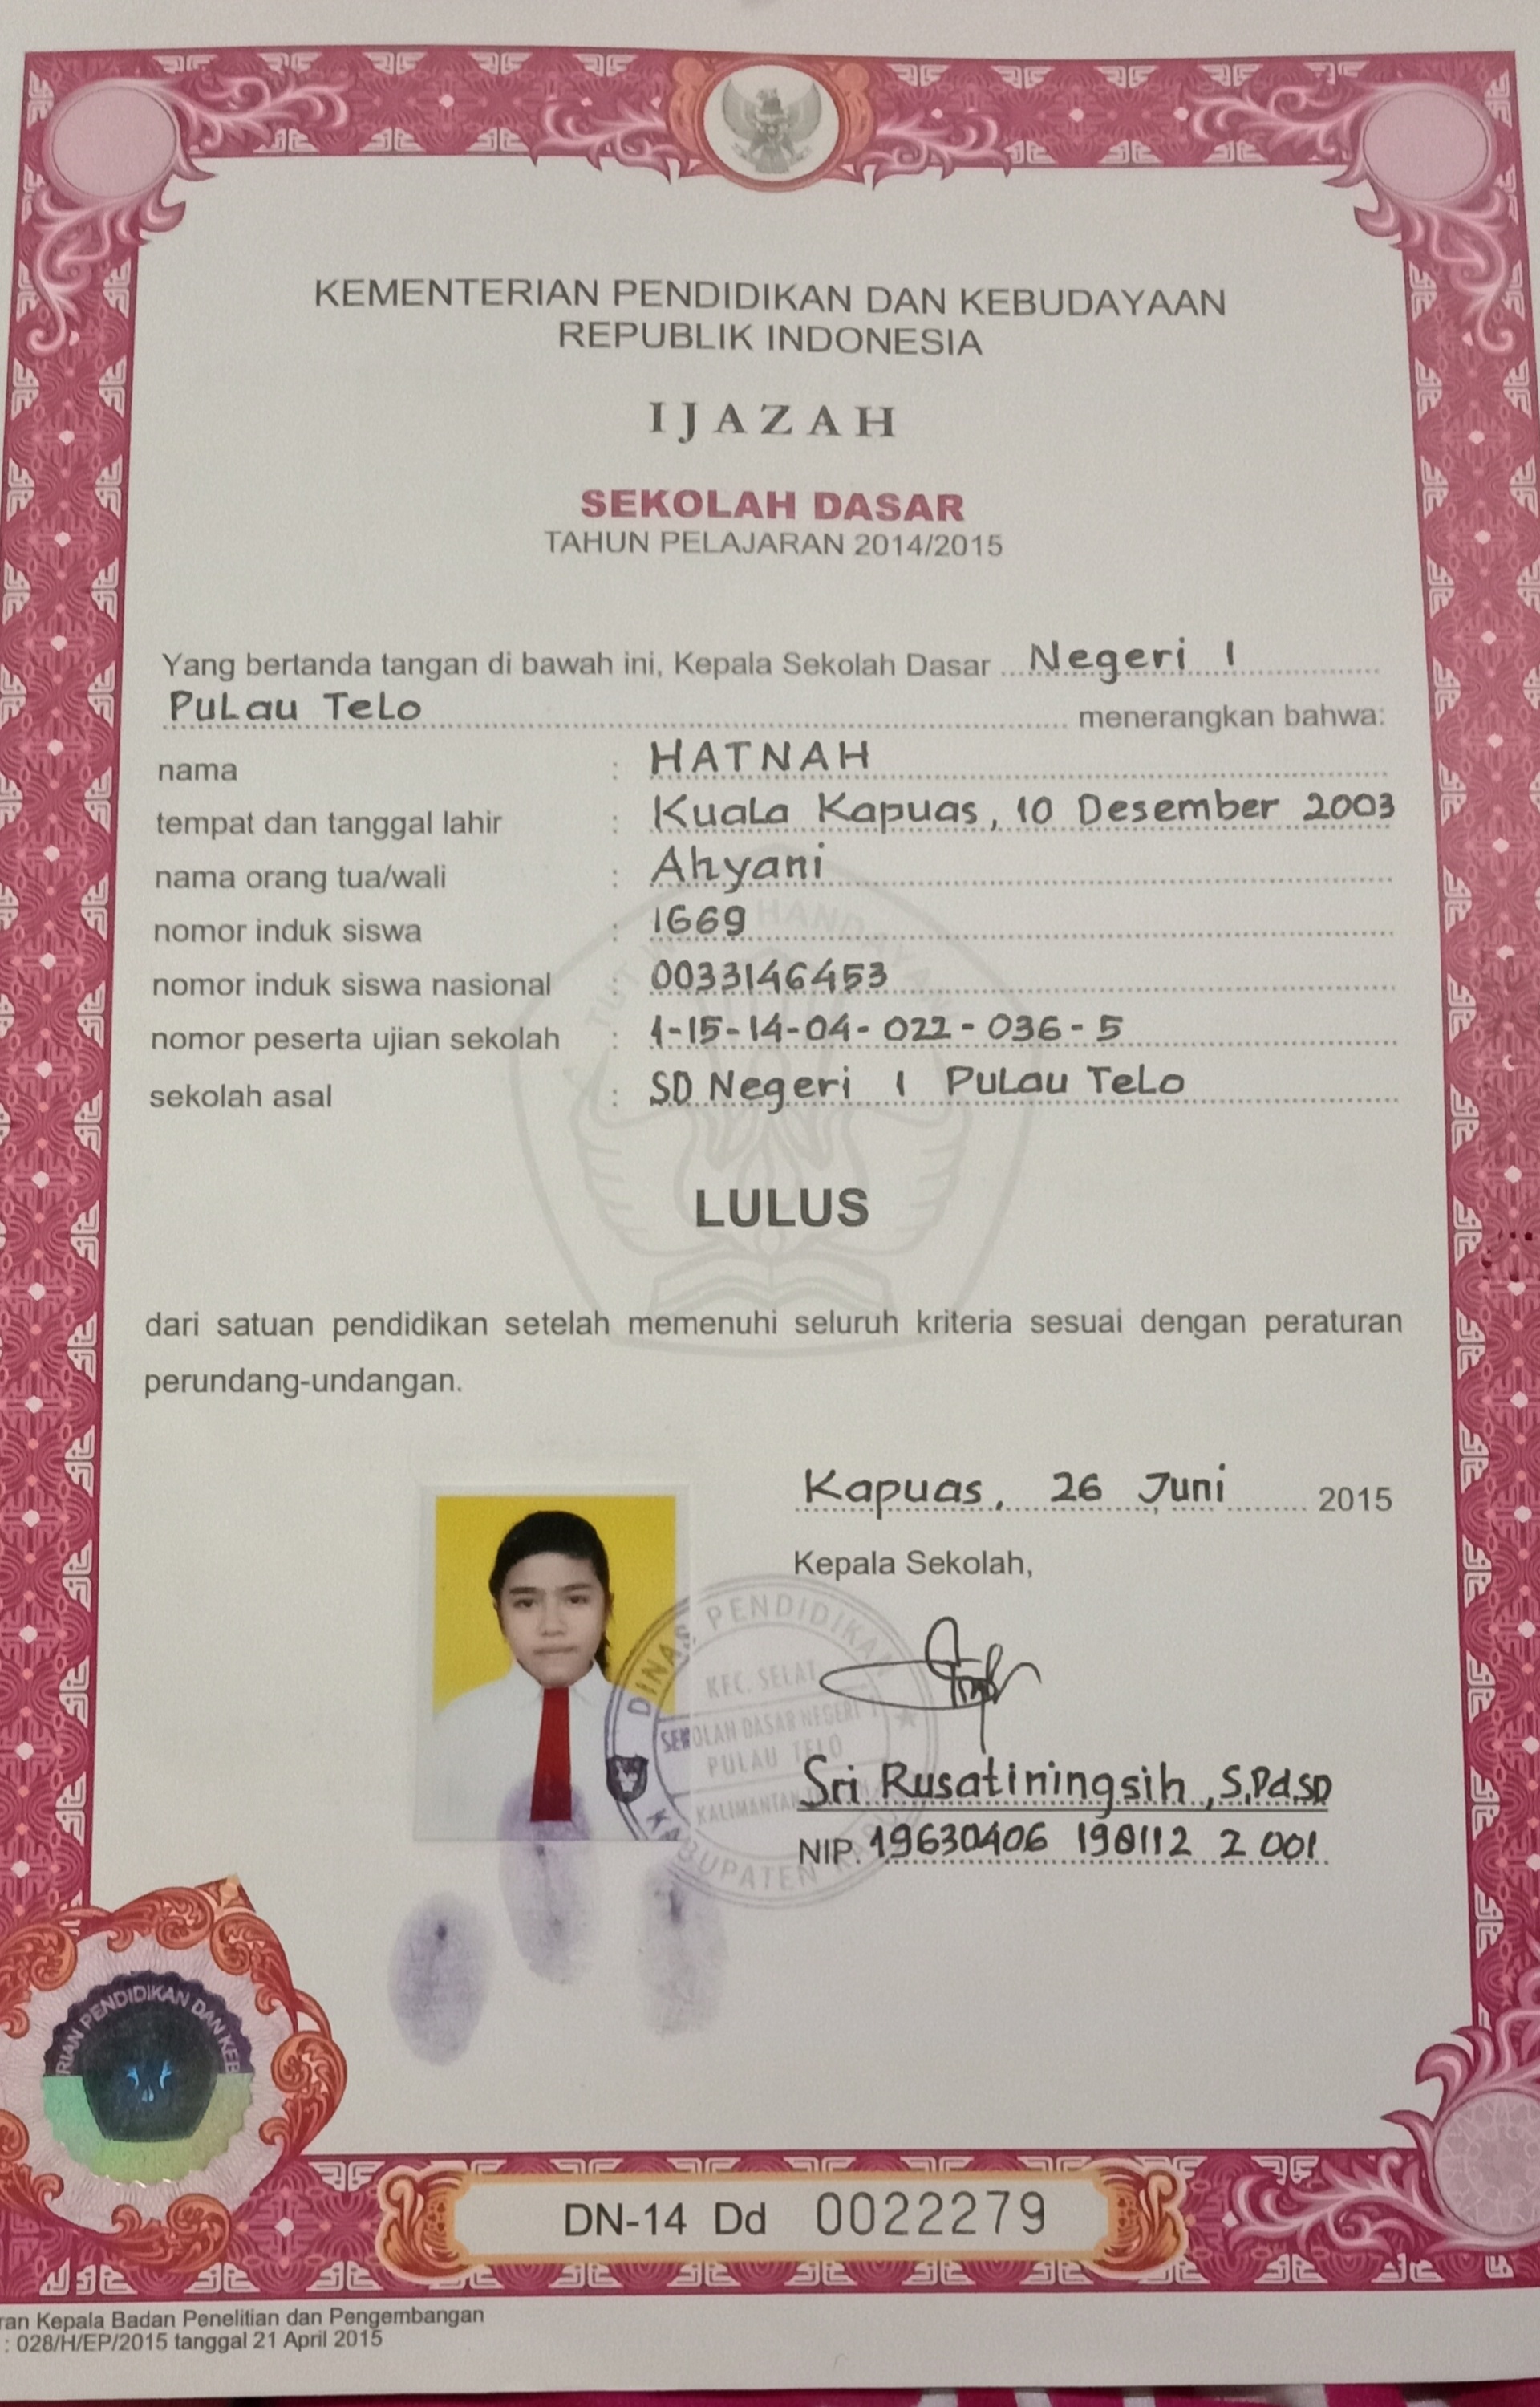 KEMENTERIAN PENDIDIKAN DAN KEBUDAYAAN
REPUBLIK INDONESIA
IJAZAH
SEKOLAH DASAR
TAHUN PELAJARAN 2014/2015
Yang bertanda tangan di bawah ini, Kepala Sekolah Dasar Negeri 1
Pulau Telo menerangkan bahwa:
nama : HATNAH
tempat dan tanggal lahir : Kuala Kapuas, 10 Desember 2003
nama orang tua/wali : Ahyani
nomor induk siswa : 1669
nomor induk siswa nasional : 0033146453
nomor peserta ujian sekolah : 1-15-14-04-022-036-5
sekolah asal : SD Negeri 1 Pulau Telo
LULUS
dari satuan pendidikan setelah memenuhi seluruh kriteria sesuai dengan peraturan
perundang-undangan.
Kapuas, 26 Juni 2015
Kepala Sekolah,
DINAS PENDIDIKAN
KEC. SELAT
SEKOLAH DASAR NEGERI 1
PULAU TELO
KALIMANTAN
KABUPATEN
Sri Rusatiningsih, S.Pd.SD
NIP. 19630406 198112 2 001
RIAN PENDIDIKAN DAN KEB
DN-14 Dd 0022279
ran Kepala Badan Penelitian dan Pengembangan
: 028/H/EP/2015 tanggal 21 April 2015